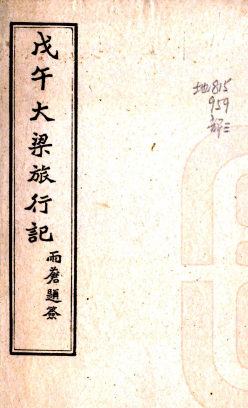 戊午大梁旅行記
雨蒼題簽
地815
959